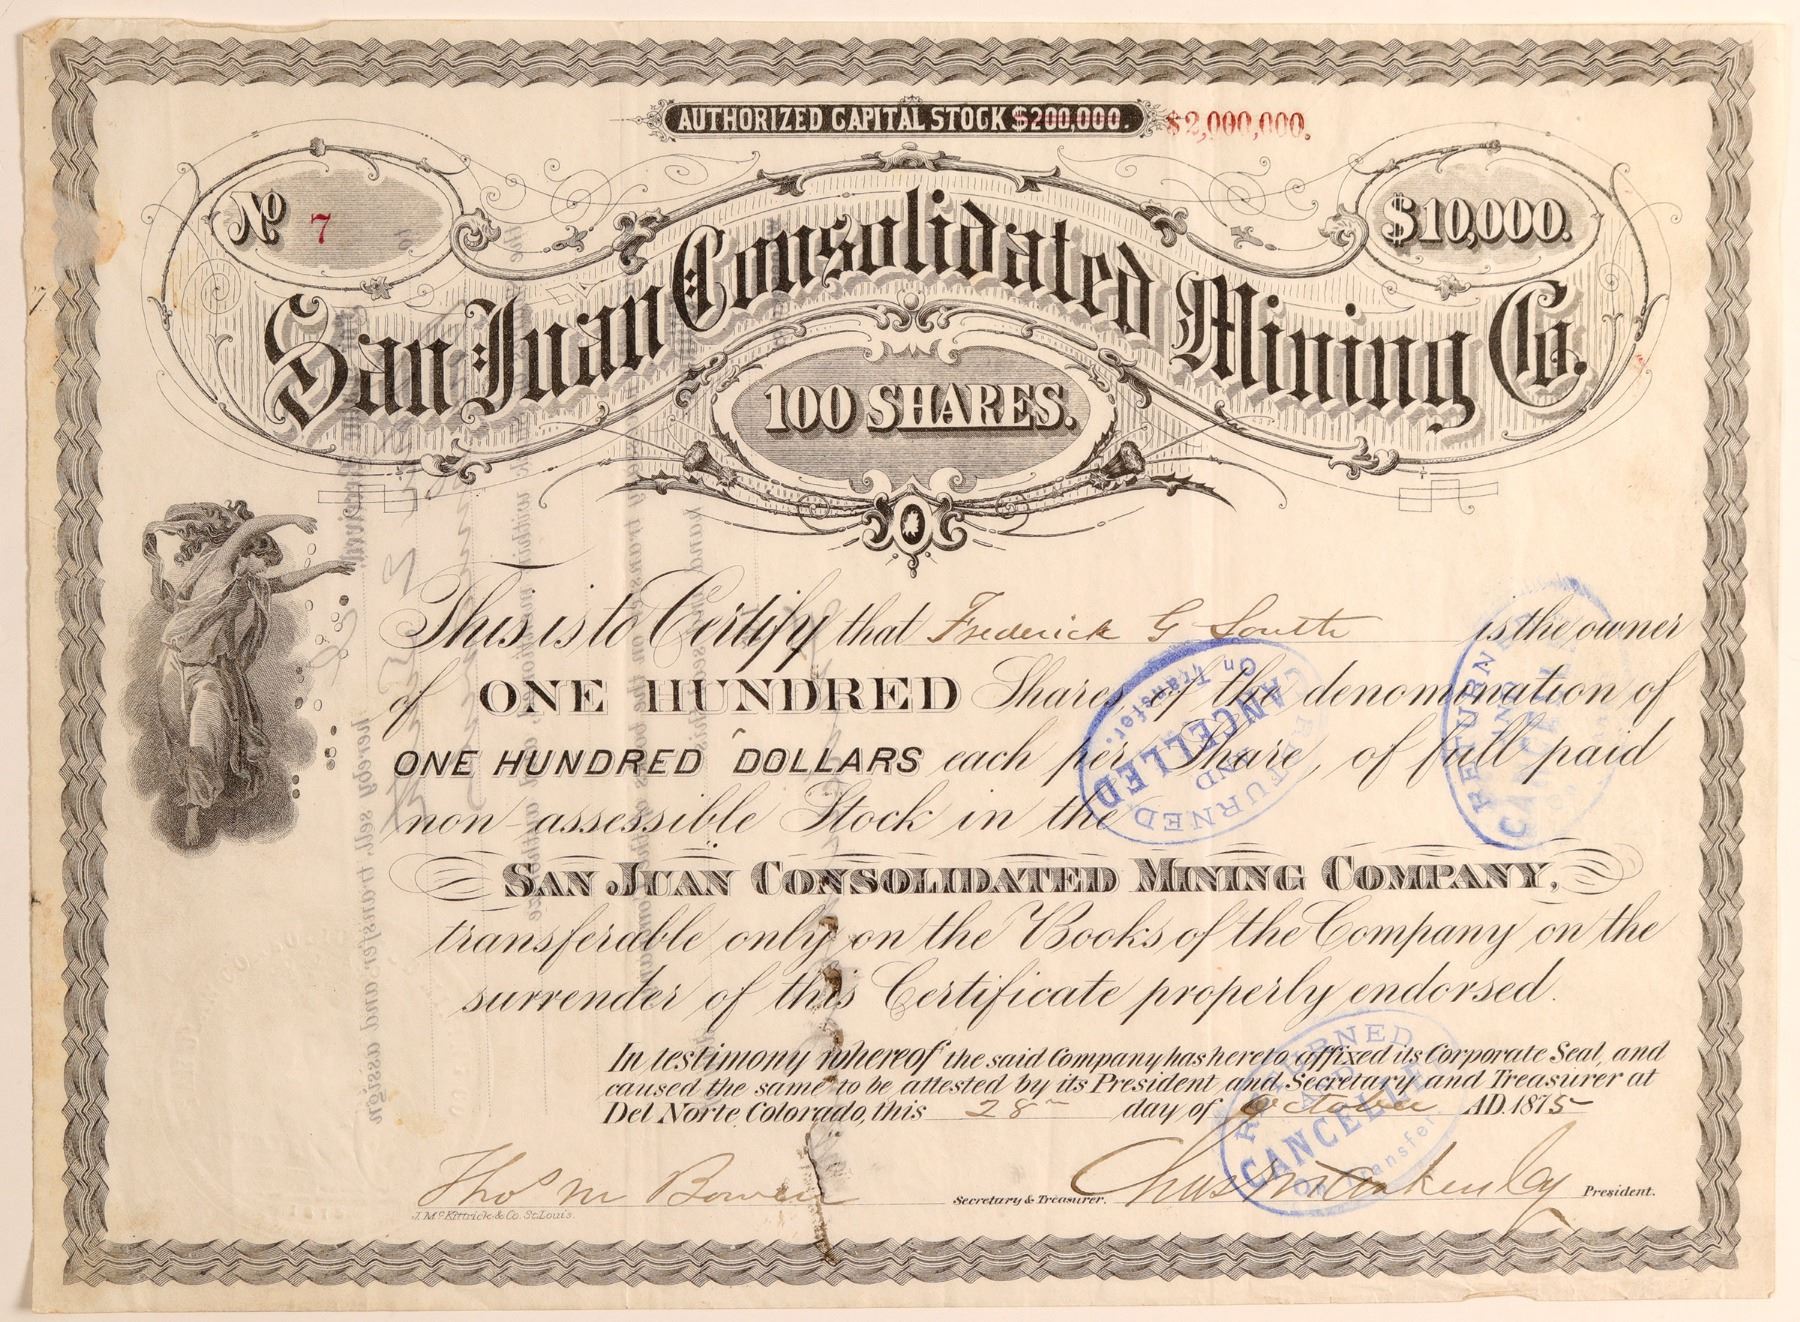 AUTHORIZED CAPITAL STOCK $200,000. $2,000,000.
No 7
$10,000.
San Juan Consolidated Mining Co.
100 SHARES.
This is to Certify that Frederick G South is the owner
of ONE HUNDRED Shares of the denomination of
ONE HUNDRED DOLLARS each per Share, of full paid
non-assessible Stock in the
SAN JUAN CONSOLIDATED MINING COMPANY,
transferable only on the Books of the Company on the
surrender of this Certificate properly endorsed.
In testimony whereof the said Company has hereto affixed its Corporate Seal, and
caused the same to be attested by its President and Secretary and Treasurer at
Del Norte, Colorado, this 28th day of October A.D. 1875
Thos M Bowen Secretary & Treasurer. President.
J. McKittrick & Co. St. Louis.
RETURNED
AND
CANCELLED
On Transfer.
RETURNED
AND
CANCELLED
RETURNED
AND
CANCELLED
On Transfer